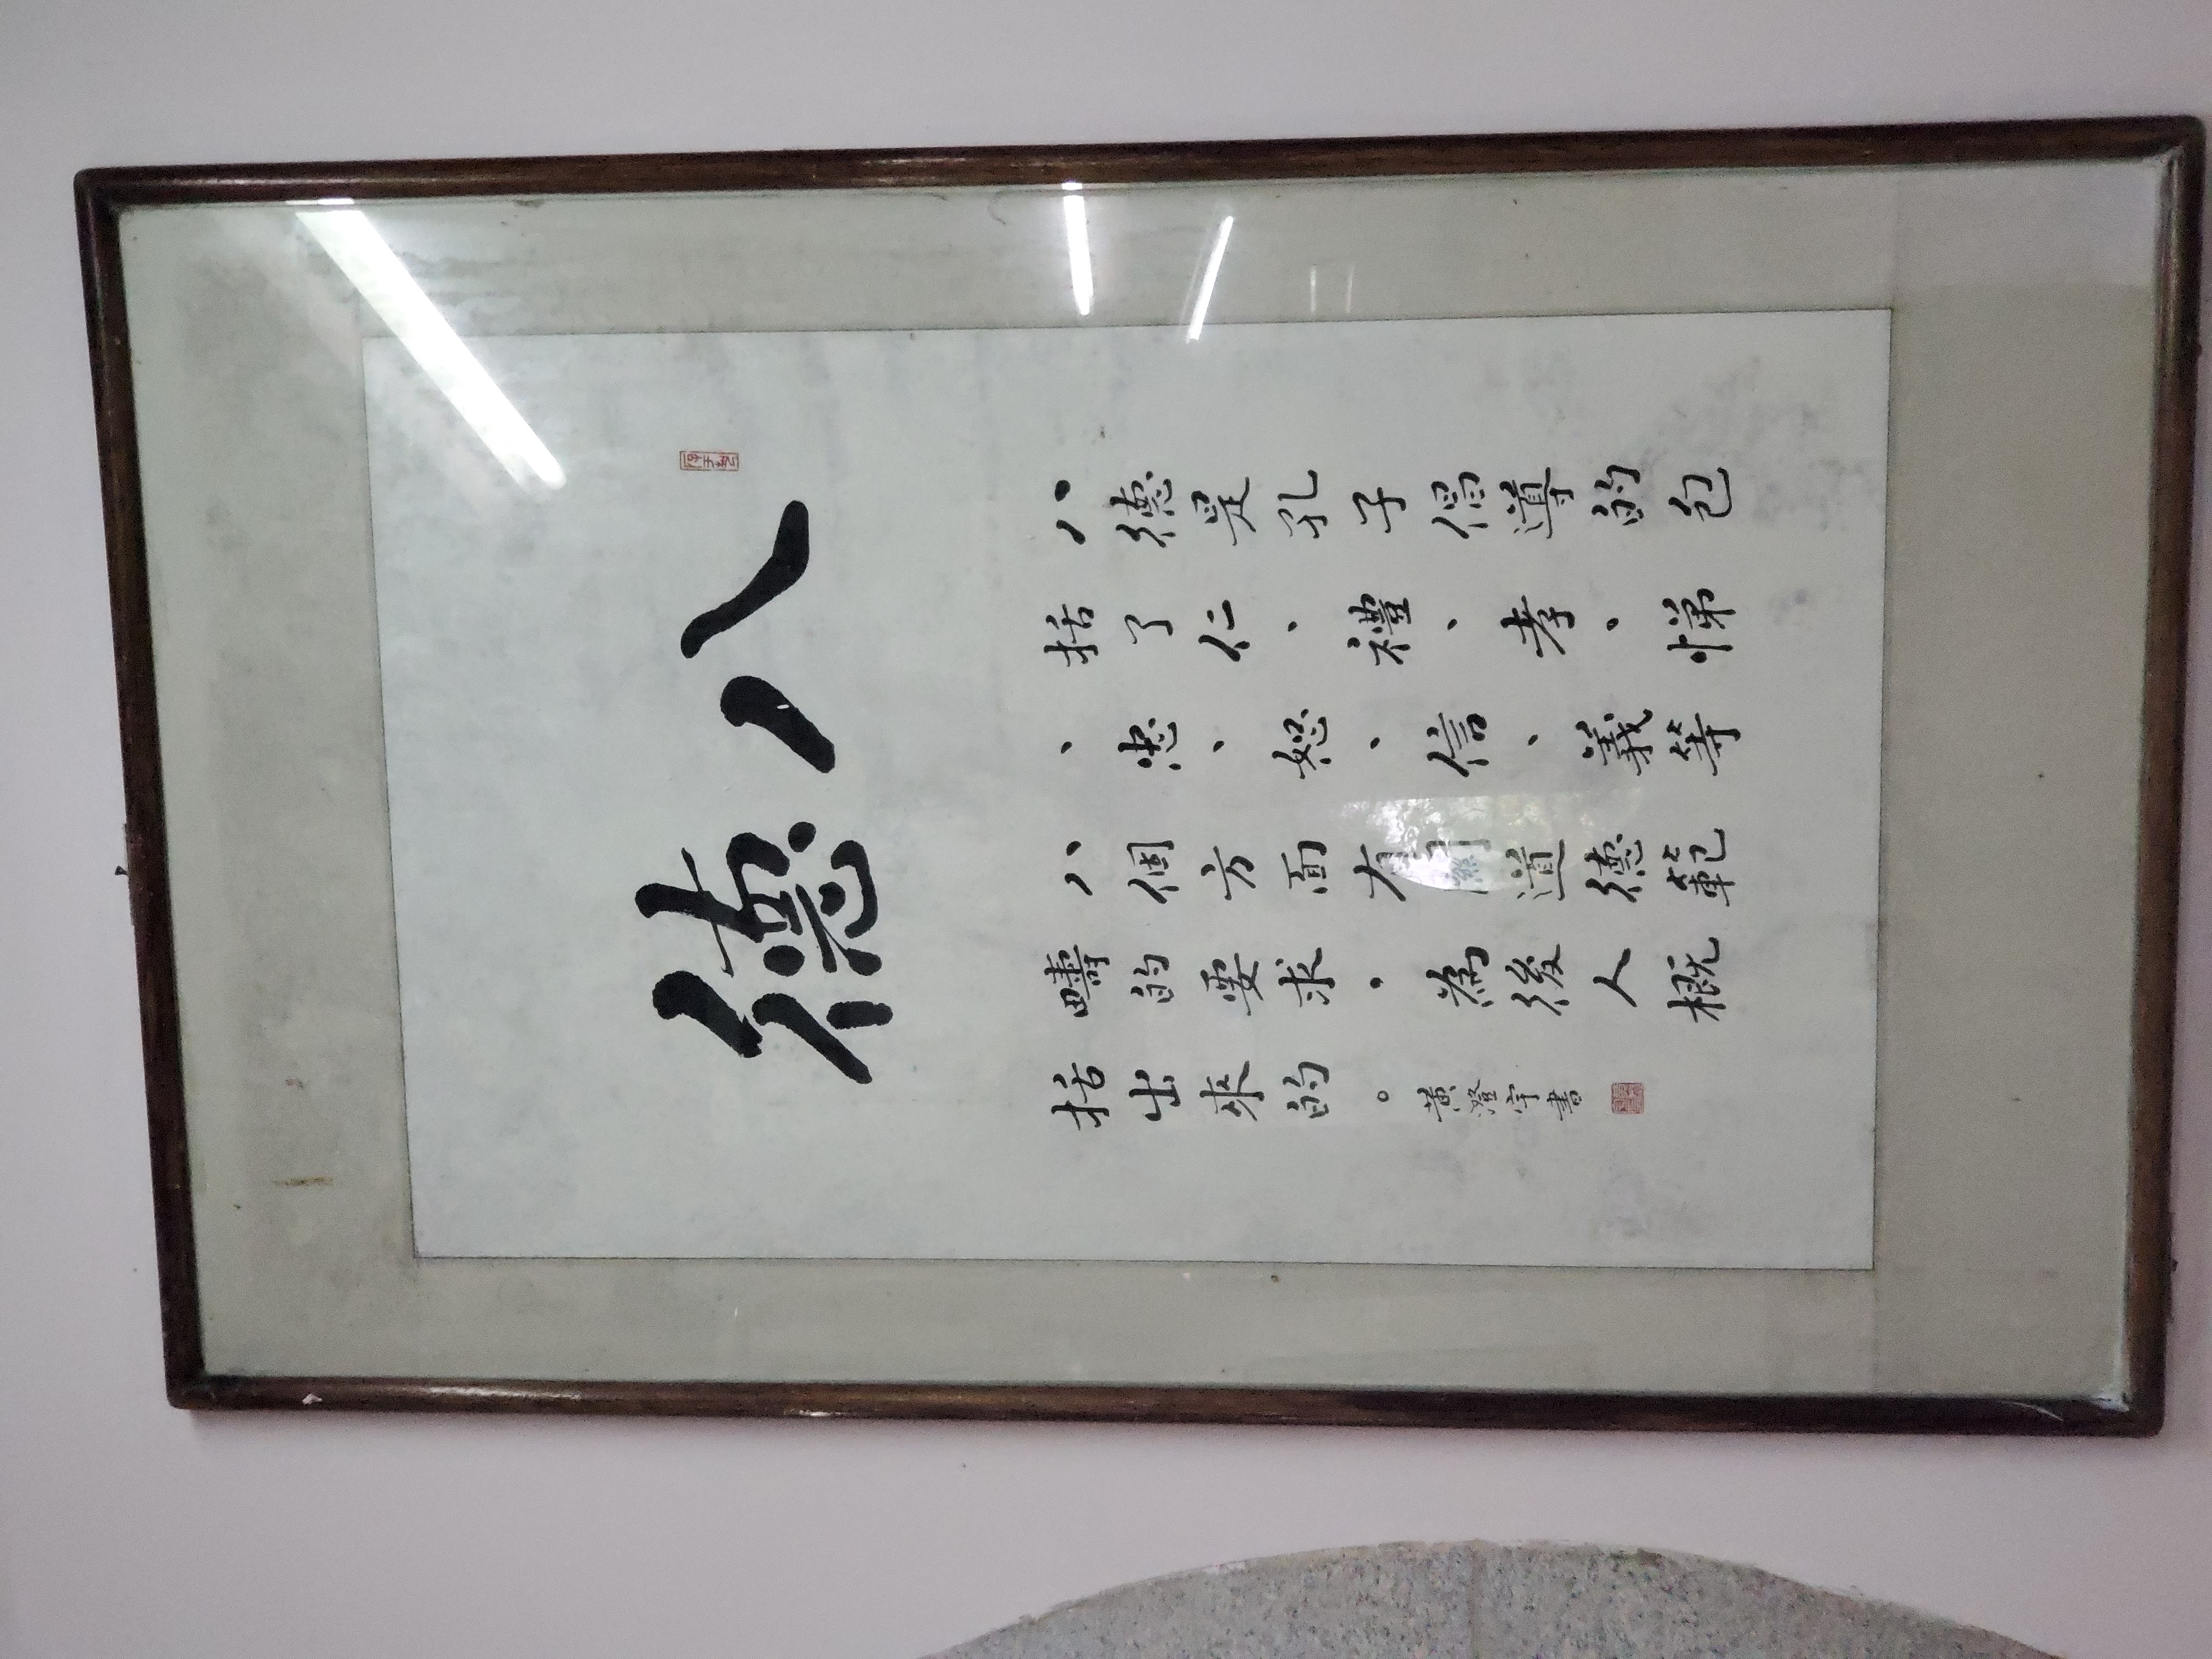 八德
八德是孔子倡導的包
括了仁、禮、孝、悌
、忠、恕、信、義等
八個方面有關道德範
疇的要求，為後人概
括出來的。黃澄宇書